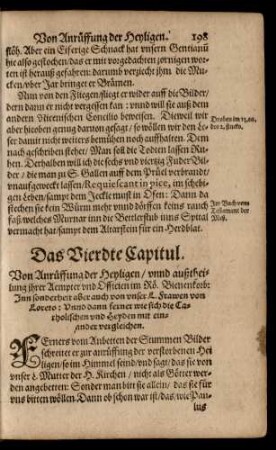 Von Anrüffung der Heyligen. 198
flöh. Aber ein Eiferige Schnack hat vnsern Gentianũ
hie also gestochen / das er mit vorgedachten zornigen wor-
ten ist herauß gefahren: darumb verzieht jhm die Mu-
cken / vber Jar bringet er Brämen.
Nun von den Fliegen fliegt er wider auff die Bilder /
dern dann er nicht vergessen kan: vnnd will sie auß dem
andern Nicenischen Concilio beweisen. Dieweil wir
aber hieoben genug darvon gesagt / so wöllen wir den Le-
ser damit nicht weiters bemühen noch auffhalten. Dem
nach geschriben stehet / Man soll die Todten lassen Ru-
hen. Derhalben will ich die sechs vnd viertzig Fuder Bil-
der / die man zu S. Gallen auff dem Prüel verbrandt /
vnauffgeweckt lassen / Requiescant in pice, im schebi-
gen Leben / sampt dem Jecklemast im Ofen: Dann da
stechen sie kein Würm mehr vnnd dörffen keins rauch
faß welches Murnar inn die Bettlerstub inns Spital
vermacht hat / sampt dem Altarstein für ein Herdblat.
Droben im 13.
der 2. stuck.
Im Buch vom
Testament der
Meß.
Das Vierdte Capitul.
Von Anrüffung der Heyligen / vnnd außthei-
lung jhrer Aempter vnd Officien im Rö. Bienenkorb:
Inn sonderheit aber auch von vnser L. Frawen von
Loreto: Vnnd dann ferner wie sich die Ca-
tholischen vnd Heyden mit ein-
ander vergleichen.
FErners vom Anbetten der Stummen Bilder
schreitet er zur anrüffung der verstorbenen Hei-
ligen / so im Himmel seind / vnd sagt / das sie von
vnser L. Mutter der H. Kirchen / nicht als Götter wer-
den angebetten: Sonder man bitt sie allein / das sie für
vns bitten wöllen. Dann ob schon war ist / das / wie Pau-
lus